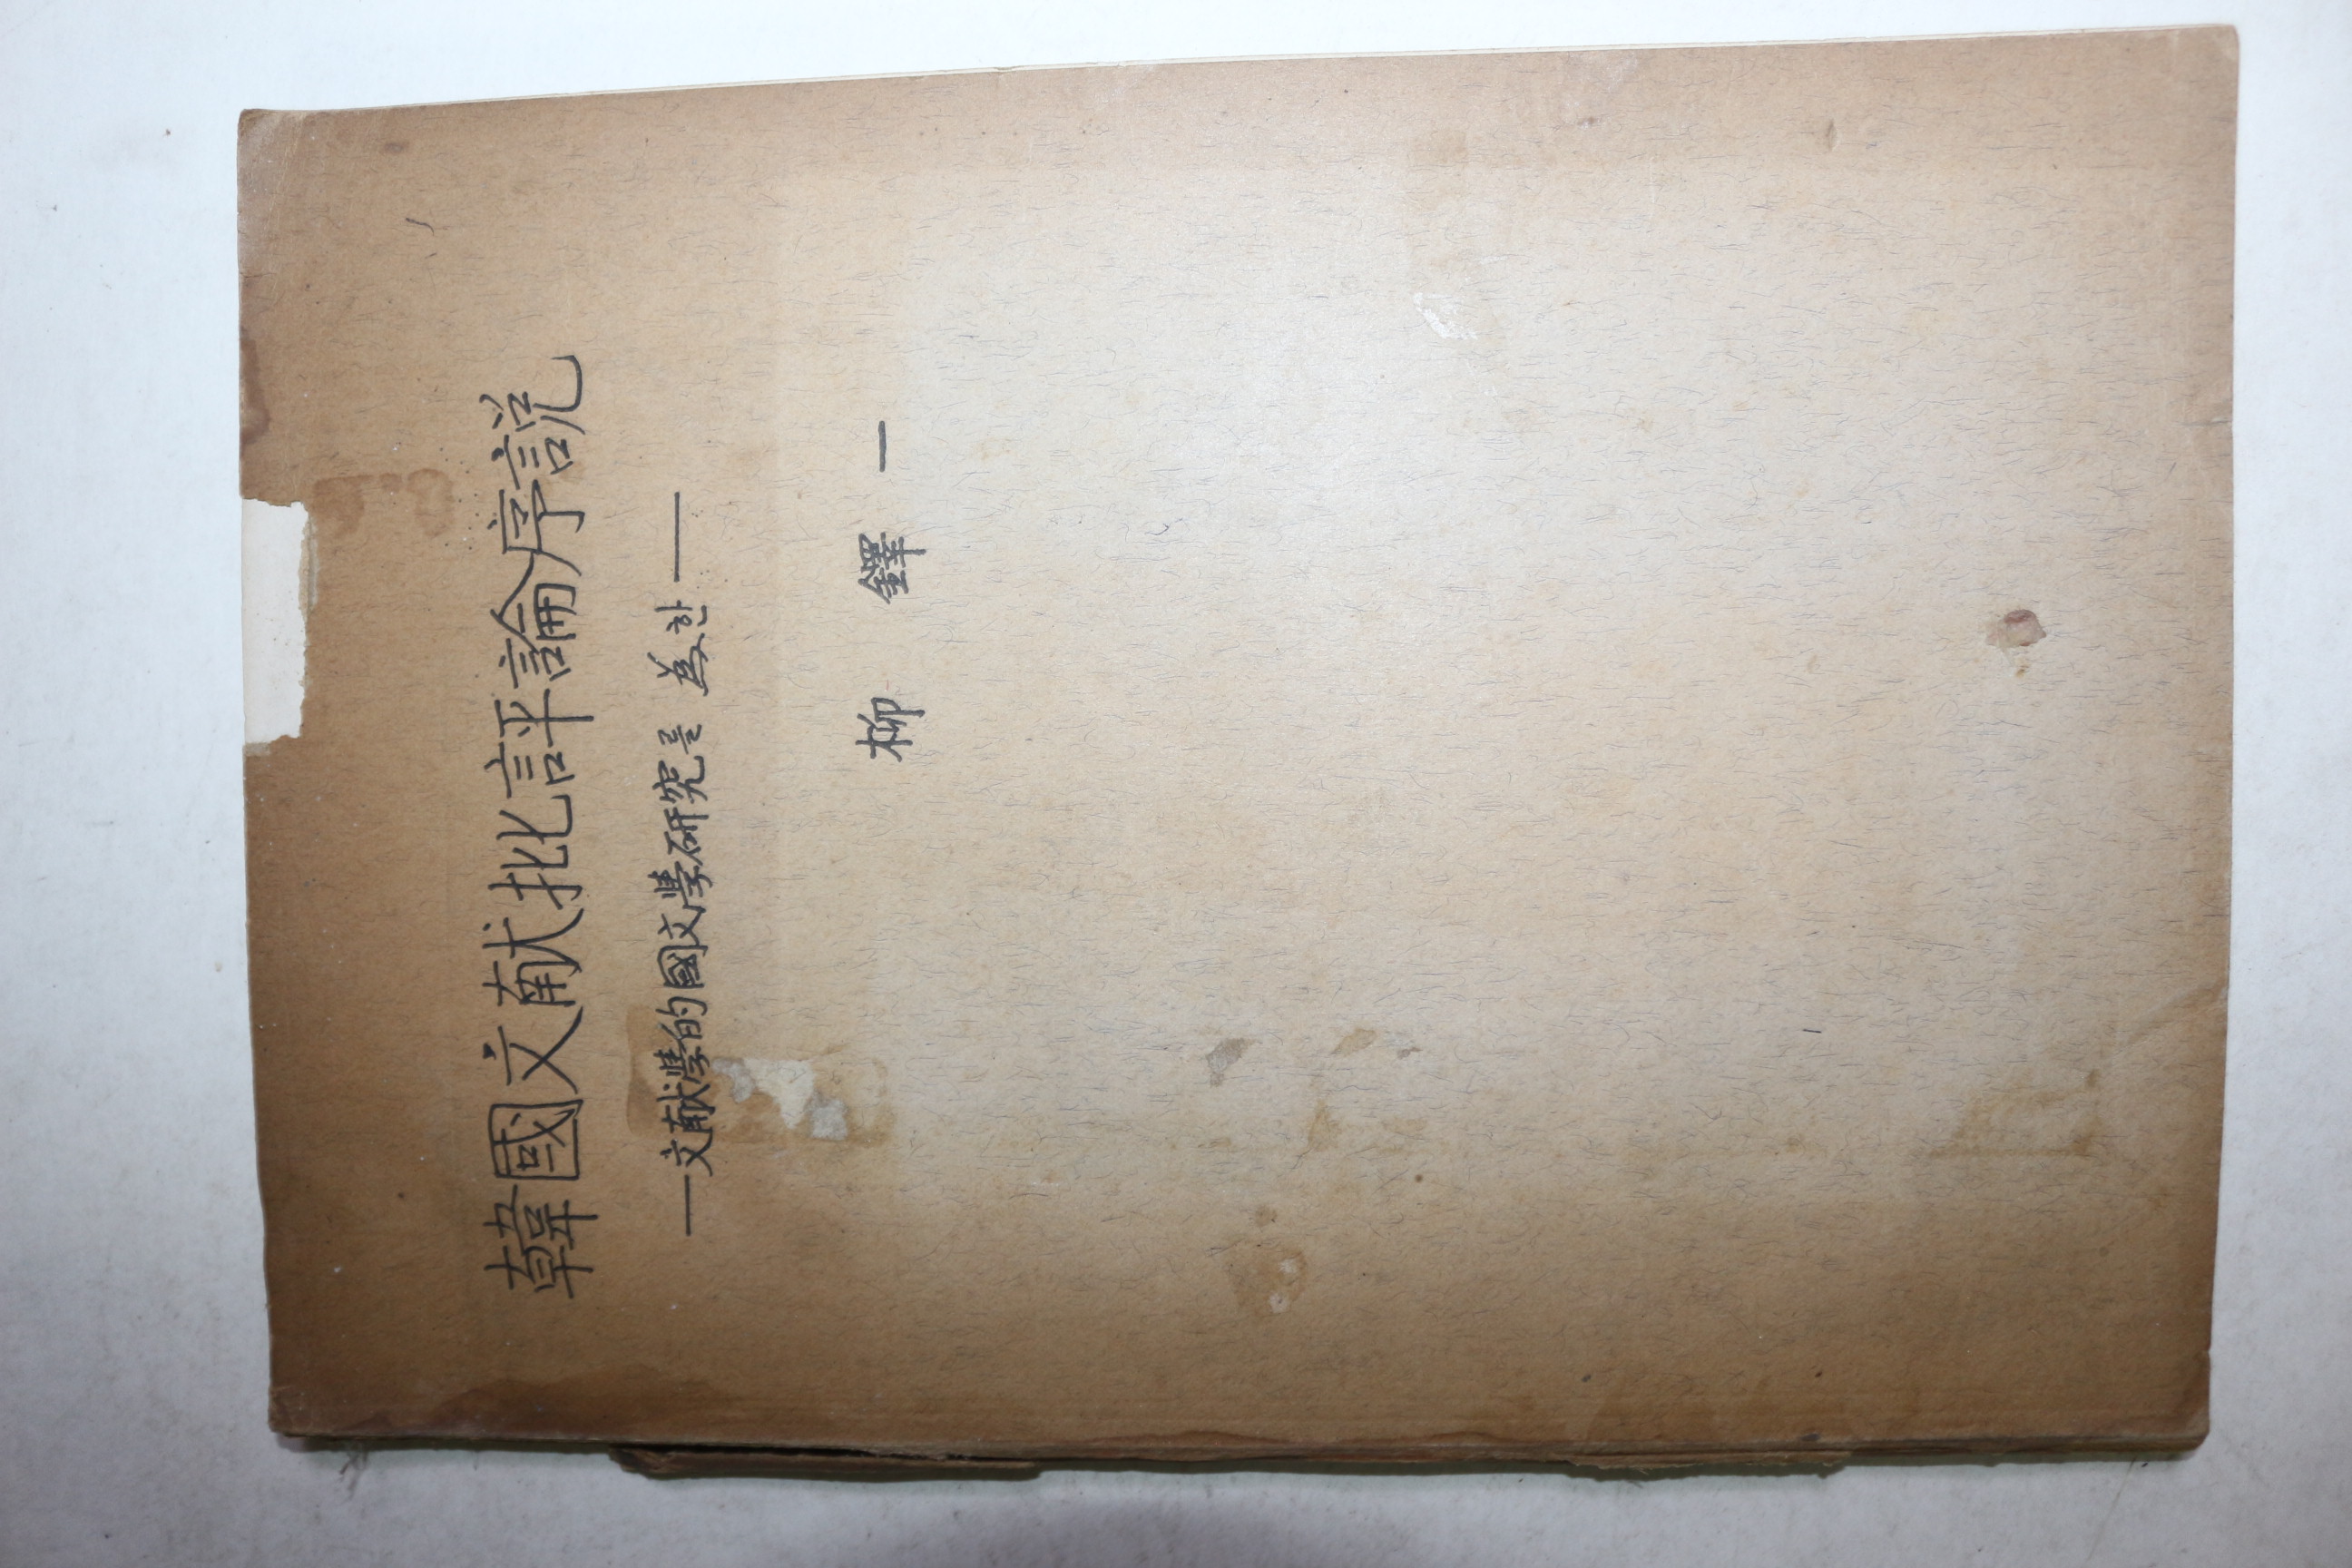 韓國文献批評論序説
—文献學的國文學研究를 爲한—
柳 鐸 一